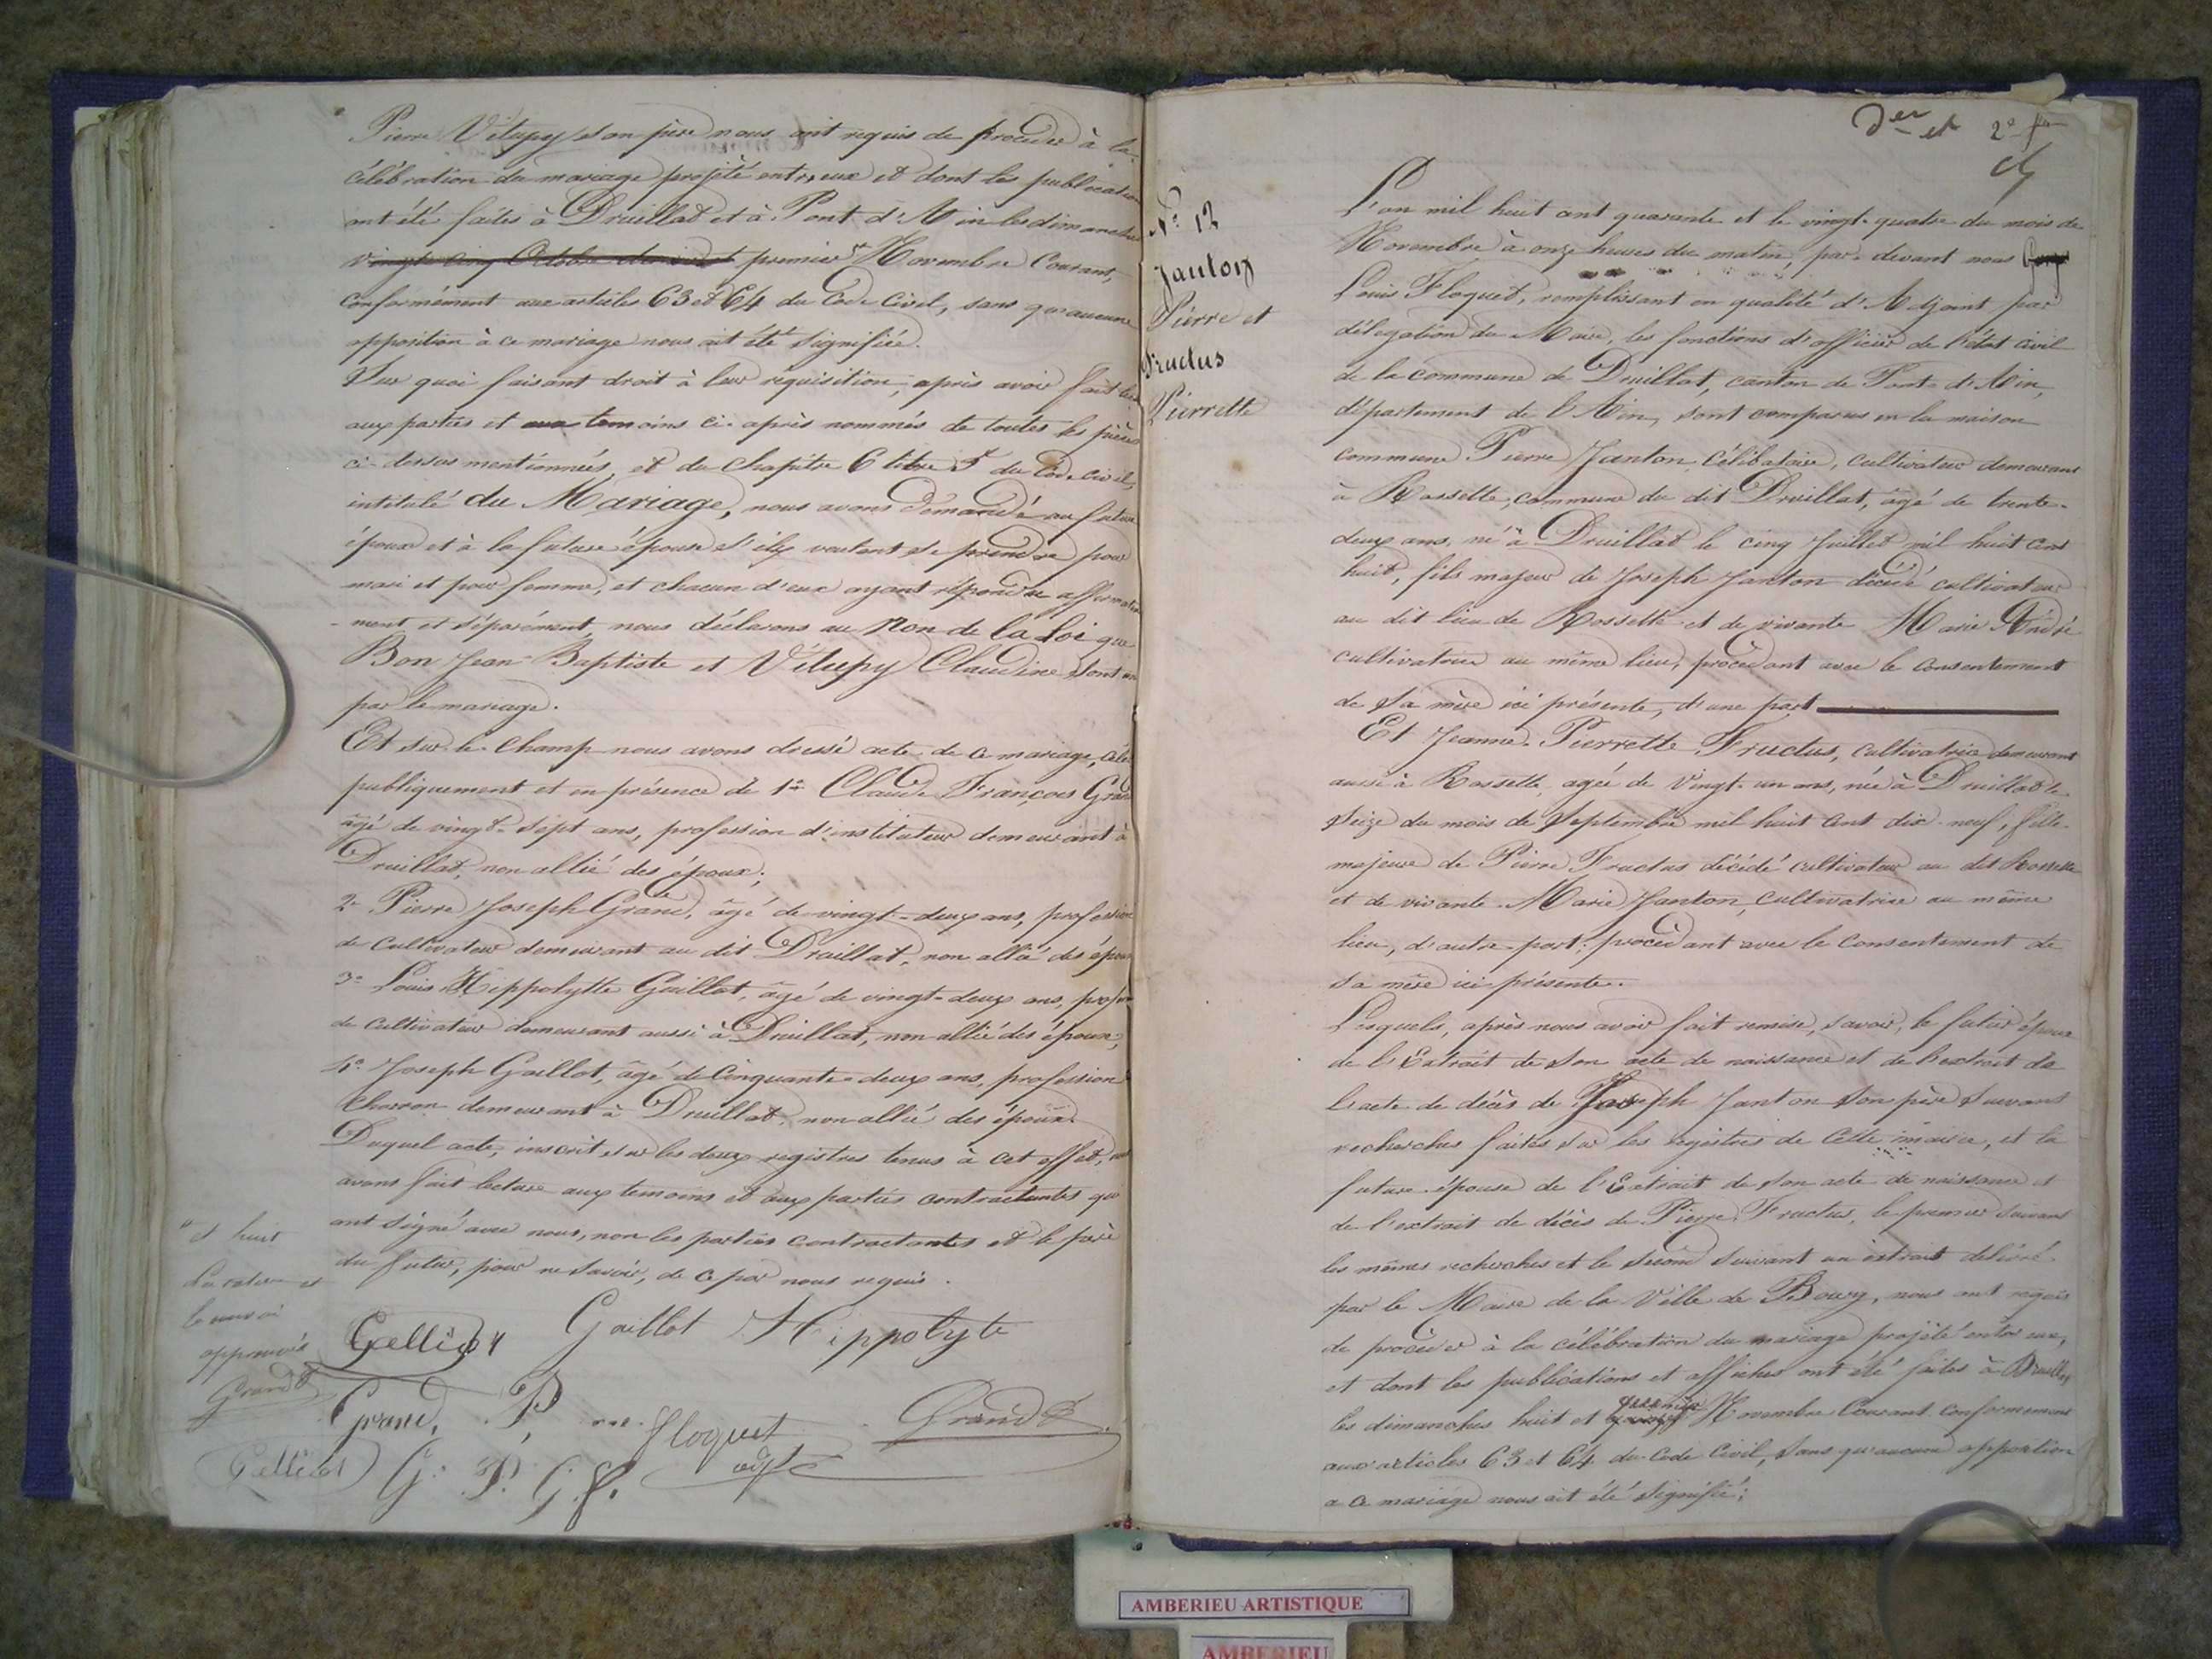 Pierre Vilupy son père nous ont requis de procéder à la
célébration du mariage projété entr'eux et dont les publications
ont été faites à Druillat et à Pont d'Ain les dimanches
vingt cinq Octobre dernier et premier Novembre Courant,
conformément aux articles 63 et 64 du Code Civil, sans qu'aucune
opposition à ce mariage nous ait été signifiée.
Sur quoi faisant droit à leur réquisition, après avoir fait lec
aux parties et aux temoins ci-après nommés de toutes les pièces
ci-dessus mentionnées, et du Chapitre 6 titre 5 du Code civil,
intitulé du Mariage, nous avons demandé au futur
époux et à la future épouse s'ils veulent se prendre pour
mari et pour femme, et chacun d'eux ayant répondu affirmative
-ment et séparément, nous déclarons au Nom de la loi que
Bon Jean Baptiste et Vilupy Claudine, sont unis
par le mariage.
Et sur-le-Champ nous avons dressé acte de ce mariage, célé
publiquement et en présence de 1° Claude François Grand
âgé de vingt-sept ans, profession d'instituteur demeurant à
Druillat, non allié des époux;
2° Pierre Joseph Grand, âgé de vingt-deux ans, profession
de Cultivateur demeurant au dit Druillat, non allié des époux
3° Louis Hippolytte Gaillot, âgé de vingt-deux ans, profession
de Cultivateur demeurant aussi à Druillat, non allié des époux;
4° Joseph Gaillot, âgé de Cinquante-deux ans, profession
Charron demeurant à Druillat, non allié des époux.
Duquel acte, inscrit sur les deux registres tenus à cet effet, nous
avons fait lecture aux temoins et aux parties contractantes qui
ont signé avec nous, non les parties contractantes et le père
du futur, pour ne savoir, de ce par nous requis.
et huit
La rature et
le renvoi
approuvés
Grand
Gaillot Hippolyte
Grand, P,
Floquet
adjt
Grand
G. P. G. f.
N° 12
Janton
Pierre et
Fructus
Pierrette
2°
L'an mil huit cent quarante et le vingt-quatre du mois de
Novembre à onze heures du matin, par-devant nous
Louis Floquet, remplissant en qualité d'Adjoint par
délégation du Maire, les fonctions d'officier de l'état civil
de la commune de Druillat, canton de Pont-d'Ain,
département de l'Ain, sont comparus en la maison
commune Pierre Janton, Célibataire, cultivateur demeurant
à Rossette, commune du dit Druillat, âgé de trente-
deux ans, né à Druillat le cinq Juillet mil huit cent
huit, fils majeur de Joseph Janton décédé cultivateur
au dit lieu de Rossette et de vivante Marie André
cultivatrice au même lieu, procédant avec le consentement
de sa mère ici présente, d'une part
Et Jeanne-Pierrette Fructus, cultivatrice demeurant
aussi à Rossette, agée de vingt-un ans, née à Druillat le
seize du mois de Septembre mil huit cent dix-neuf, fille
majeure de Pierre Fructus décédé cultivateur au dit Rossette
et de vivante Marie Janton, cultivatrice au même
lieu, d'autre-part; procédant avec le consentement de
sa mère ici présente.
Lesquels, après nous avoir fait remise, savoir, le futur époux
de l'Extrait de son acte de naissance et de l'extrait de
l'acte de décès de Joseph Janton son père suivant
recherches faites sur les registres de Cette mairie, et la
future-épouse de l'Extrait de son acte de naissance et
de l'extrait de décès de Pierre Fructus, le premier suivant
les mêmes recherches et le second suivant un extrait délivré
par le Maire de la Ville de Bourg, nous ont requis
de procéder à la célébration du mariage projété entre eux,
et dont les publications et affiches ont été faites à Druillat,
les dimanches huit et quinze Novembre Courant conformément
aux articles 63 et 64 du Code Civil, sans qu'aucune opposition
a ce mariage nous ait été signifié;
AMBERIEU ARTISTIQUE
AMBERIEU